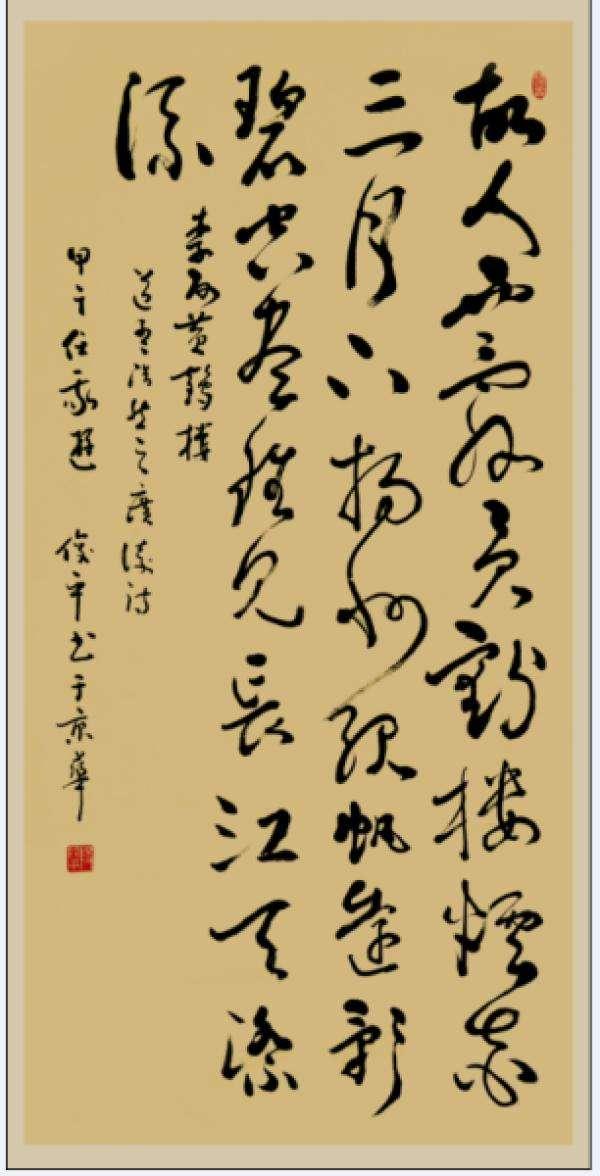 故人西辭黄鶴樓煙花
三月下揚州孤帆遠影
碧空盡唯見長江天際
流
李白黄鶴樓
送孟浩然之廣陵詩
甲午任我遊 俊平书于京華